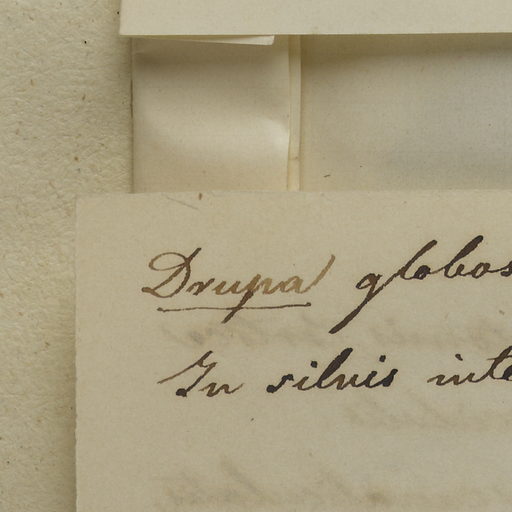 Drupa globos
In silvis inte